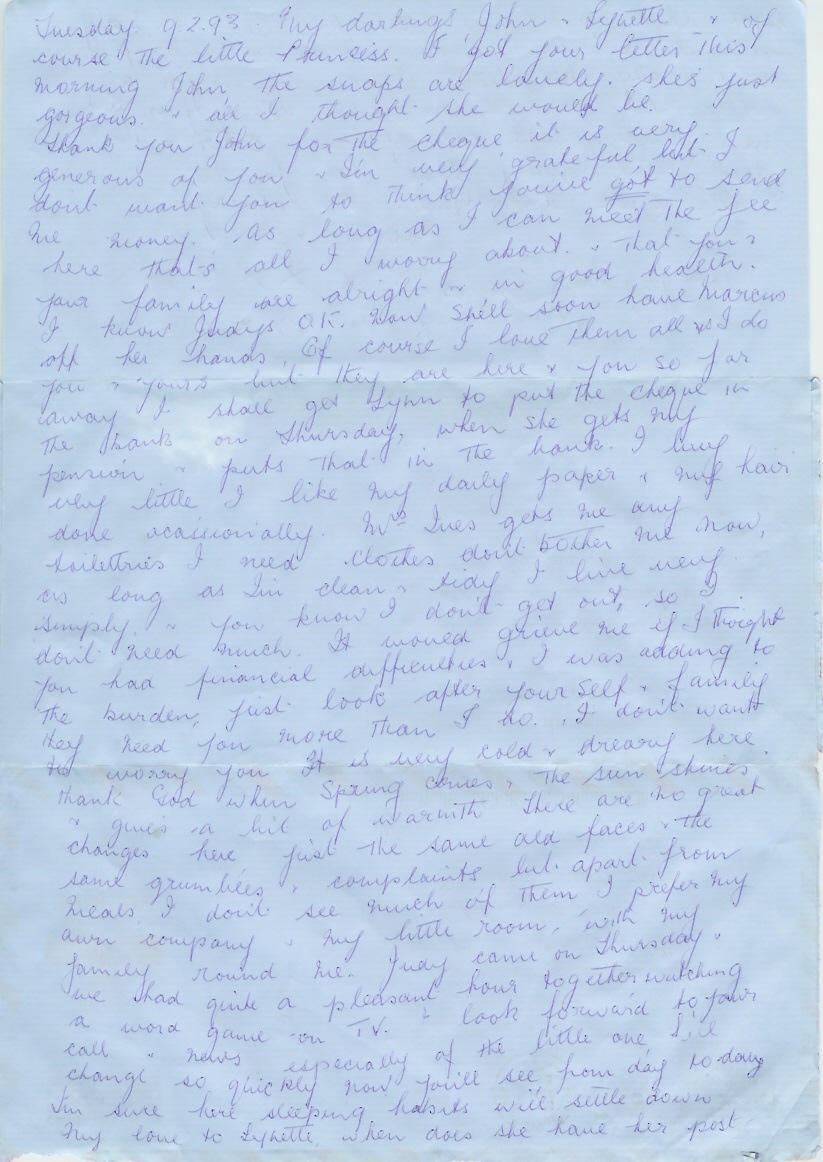 Tuesday. 9.2.93. My darlings John & Lynette & of
course the little Princess. I got your letter this
morning John the snaps are lovely. she's just
gorgeous. & all I thought she would be.
Thank you John for the cheque it is very
generous of you & I'm very grateful but I
dont want you to think you've got to send
me money. As long as I can meet the fee
here that's all I worry about. & that you &
your family are alright & in good health.
I know Judys O.K. now she'll soon have Marcus
off her hands. Of course I love them all as I do
you & yours but they are here & you so far
away I shall get Lynn to put the cheque in
the bank on Thursday, when she gets my
pension & puts that in the bank. I buy
very little I like my daily paper & my hair
done ocassionally. Mrs Ines gets me any
toiletries I need clothes dont bother me now,
as long as I'm clean & tidy I live very
simply. & you know I don't get out, so I
don't need much. It would grieve me if I thought
you had financial difficulties & I was adding to
the burden, just look after yourself & family
they need you more than I do. I don't want
to worry you It is very cold & dreary here.
thank God when Spring comes & the sun shines
& gives a bit of warmth There are no great
changes here just the same old faces & the
same grumbles & complaints but apart from
meals, I don't see much of them I prefer my
own company & my little room, with my
family round me. Judy came on Thursday &
we had quite a pleasant hour together watching
a word game on TV. I look forward to your
call & news especially of the little one She'll
change so quickly now you'll see from day to day
I'm sure here sleeping habits will settle down
My love to Lynette, when does she have her post-